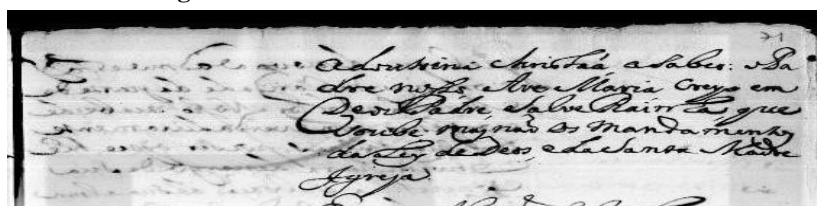 a doutrina christaã a saber: o Pa
dre nosso Ave Maria Creyo em
Deos Padre, e Salve Rainha, que
soube, mas não os Mandamentos
da Ley de Deos, e da Santa Madre
Igreja